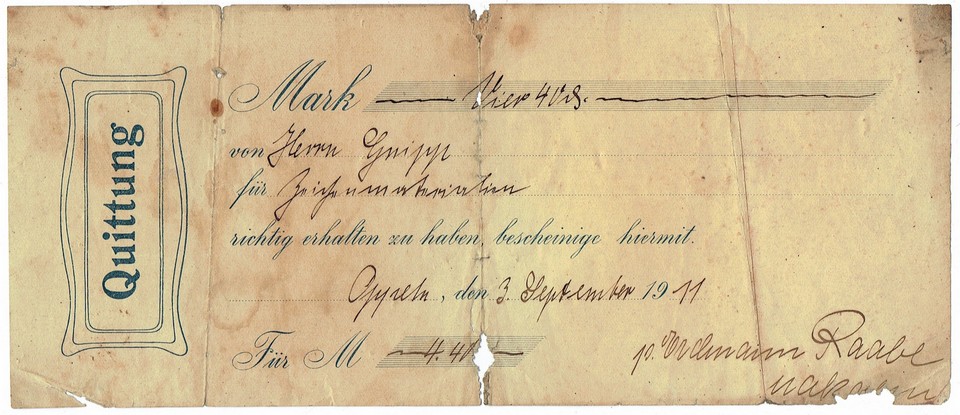 Quittung
Mark Vier 40
von Herrn
für Zeichenmaterialien
richtig erhalten zu haben, bescheinige hiermit.
Oppeln, den 3. September 1911
Für M 4.40
p. Erdmann Raabe